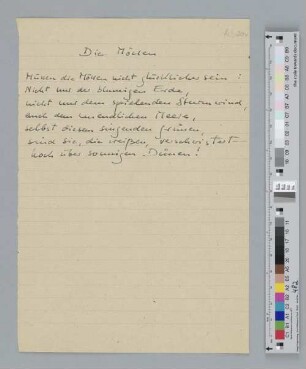 Die Möwen
Müssen die Möwen nicht glücklicher sein?
Nicht nur der blumigen Erde,
nicht nur dem spielenden Sturmwind,
auch dem unendlichen Meere,
selbst diesem singenden
sind sie, die weißen, verschwistert –
hoch über sonnigen Dünen!